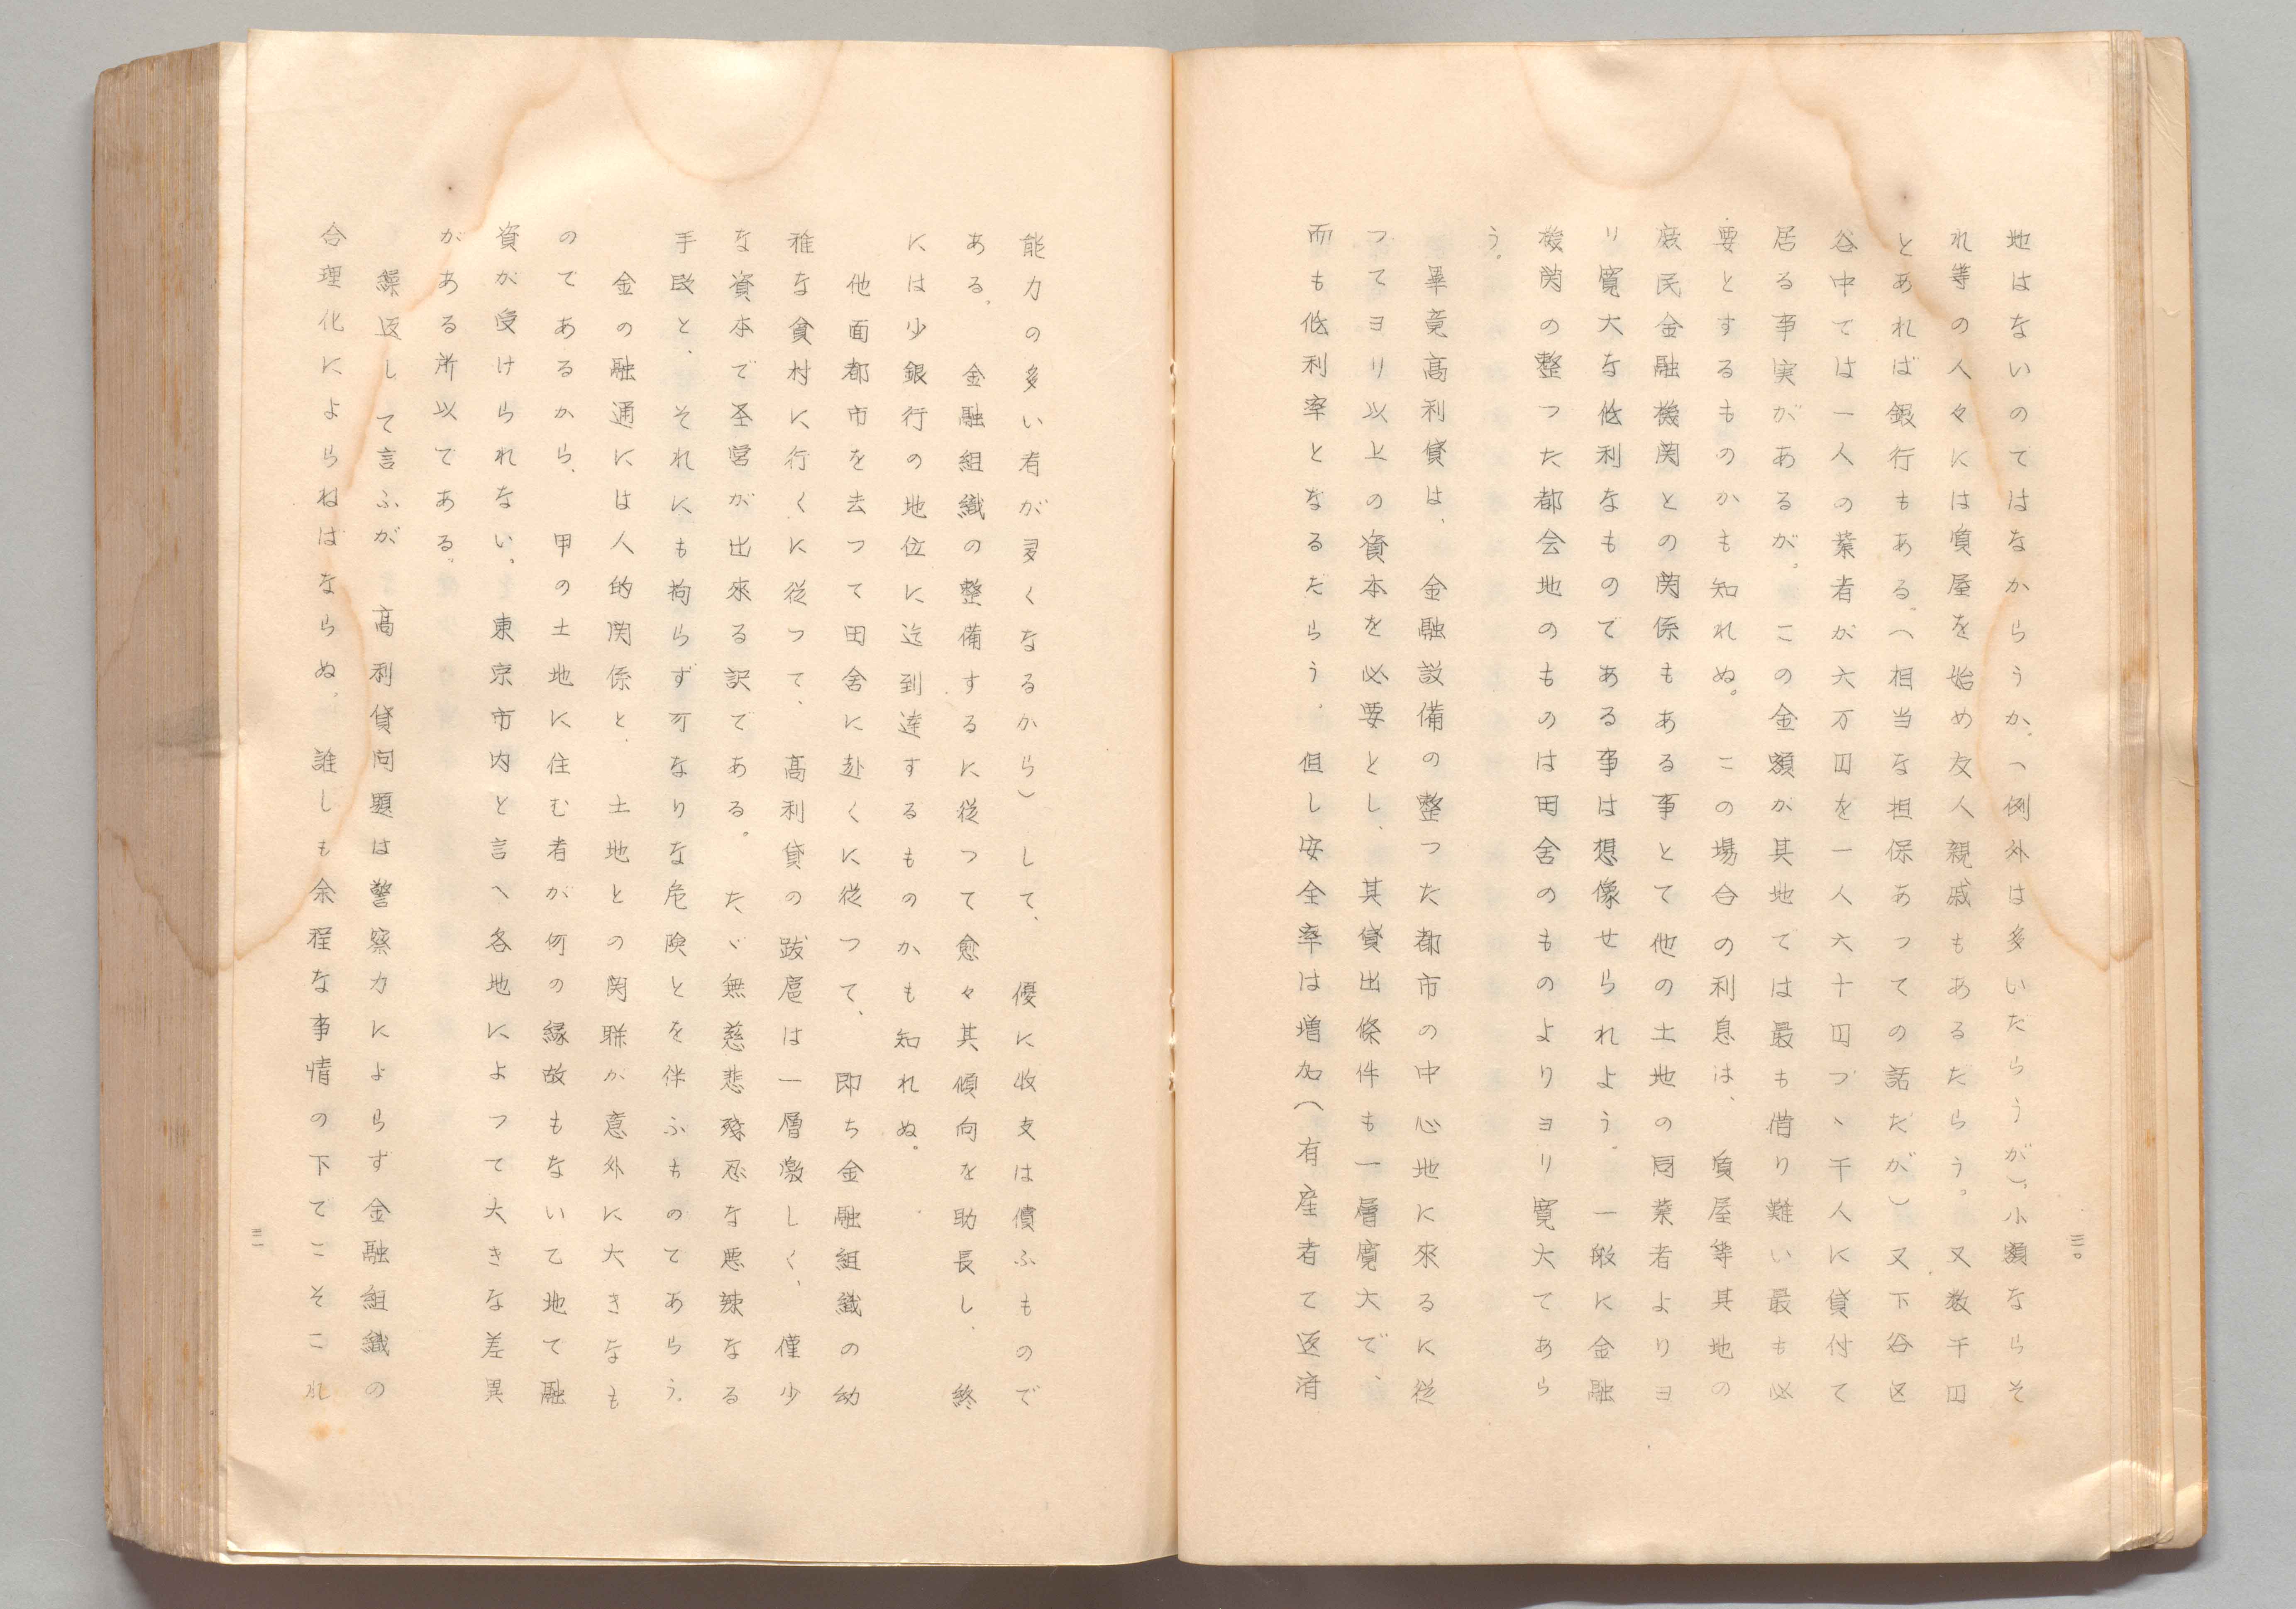 三〇
地はないのてはなからうか、（例外は多いだらうが）。小額ならそ
れ等の人々には質屋を始め友人親戚もあるたらう。又数千円
とあれば銀行もある。（相当な担保あつての話だが）又下谷区
谷中ては一人の業者が六万円を一人六十円づゝ千人に貸付て
居る事実があるが。この金額が其地では最も借り難い最も必
要とするものかも知れぬ。この場合の利息は、質屋等其地の
庶民金融機関との関係もある事とて他の土地の同業者よりヨ
リ寛大な低利なものてある事は想像せられよう。一般に金融
機関の整つた都会地のものは田舎のものよりヨリ寛大てあら
う。
畢竟高利貸は、金融設備の整つた都市の中心地に來るに従
つてヨリ以上の資本を必要とし、其貸出條件も一層寛大で、
而も低利率となるだらう。但し安全率は増加（有産者て返済
能力の多い者が多くなるから）して、優に收支は償ふもので
ある、金融組織の整備するに従つて愈々其傾向を助長し、終
には少銀行の地位に迄到達するものかも知れぬ。
他面都市を去つて田舎に赴くに従つて、即ち金融組織の幼
稚な貧村に行くに従つて、高利貸の跋扈は一層激しく、僅少
な資本で圣営が出來る訳である。たゞ無慈悲残忍な悪辣なる
手段と、それにも拘らず可なりな危険とを伴ふものてあらう。
金の融通には人的関係と、土地との関聯が意外に大きなも
のであるから、甲の土地に住む者が何の縁故もない乙地て融
資が受けられない、東京市内と言へ各地によつて大きな差異
がある所以てある。
繰返して言ふが高利貸问題は警察力によらず金融組織の
合理化によらねばならぬ。誰しも余程な事情の下でこそこれ
三一